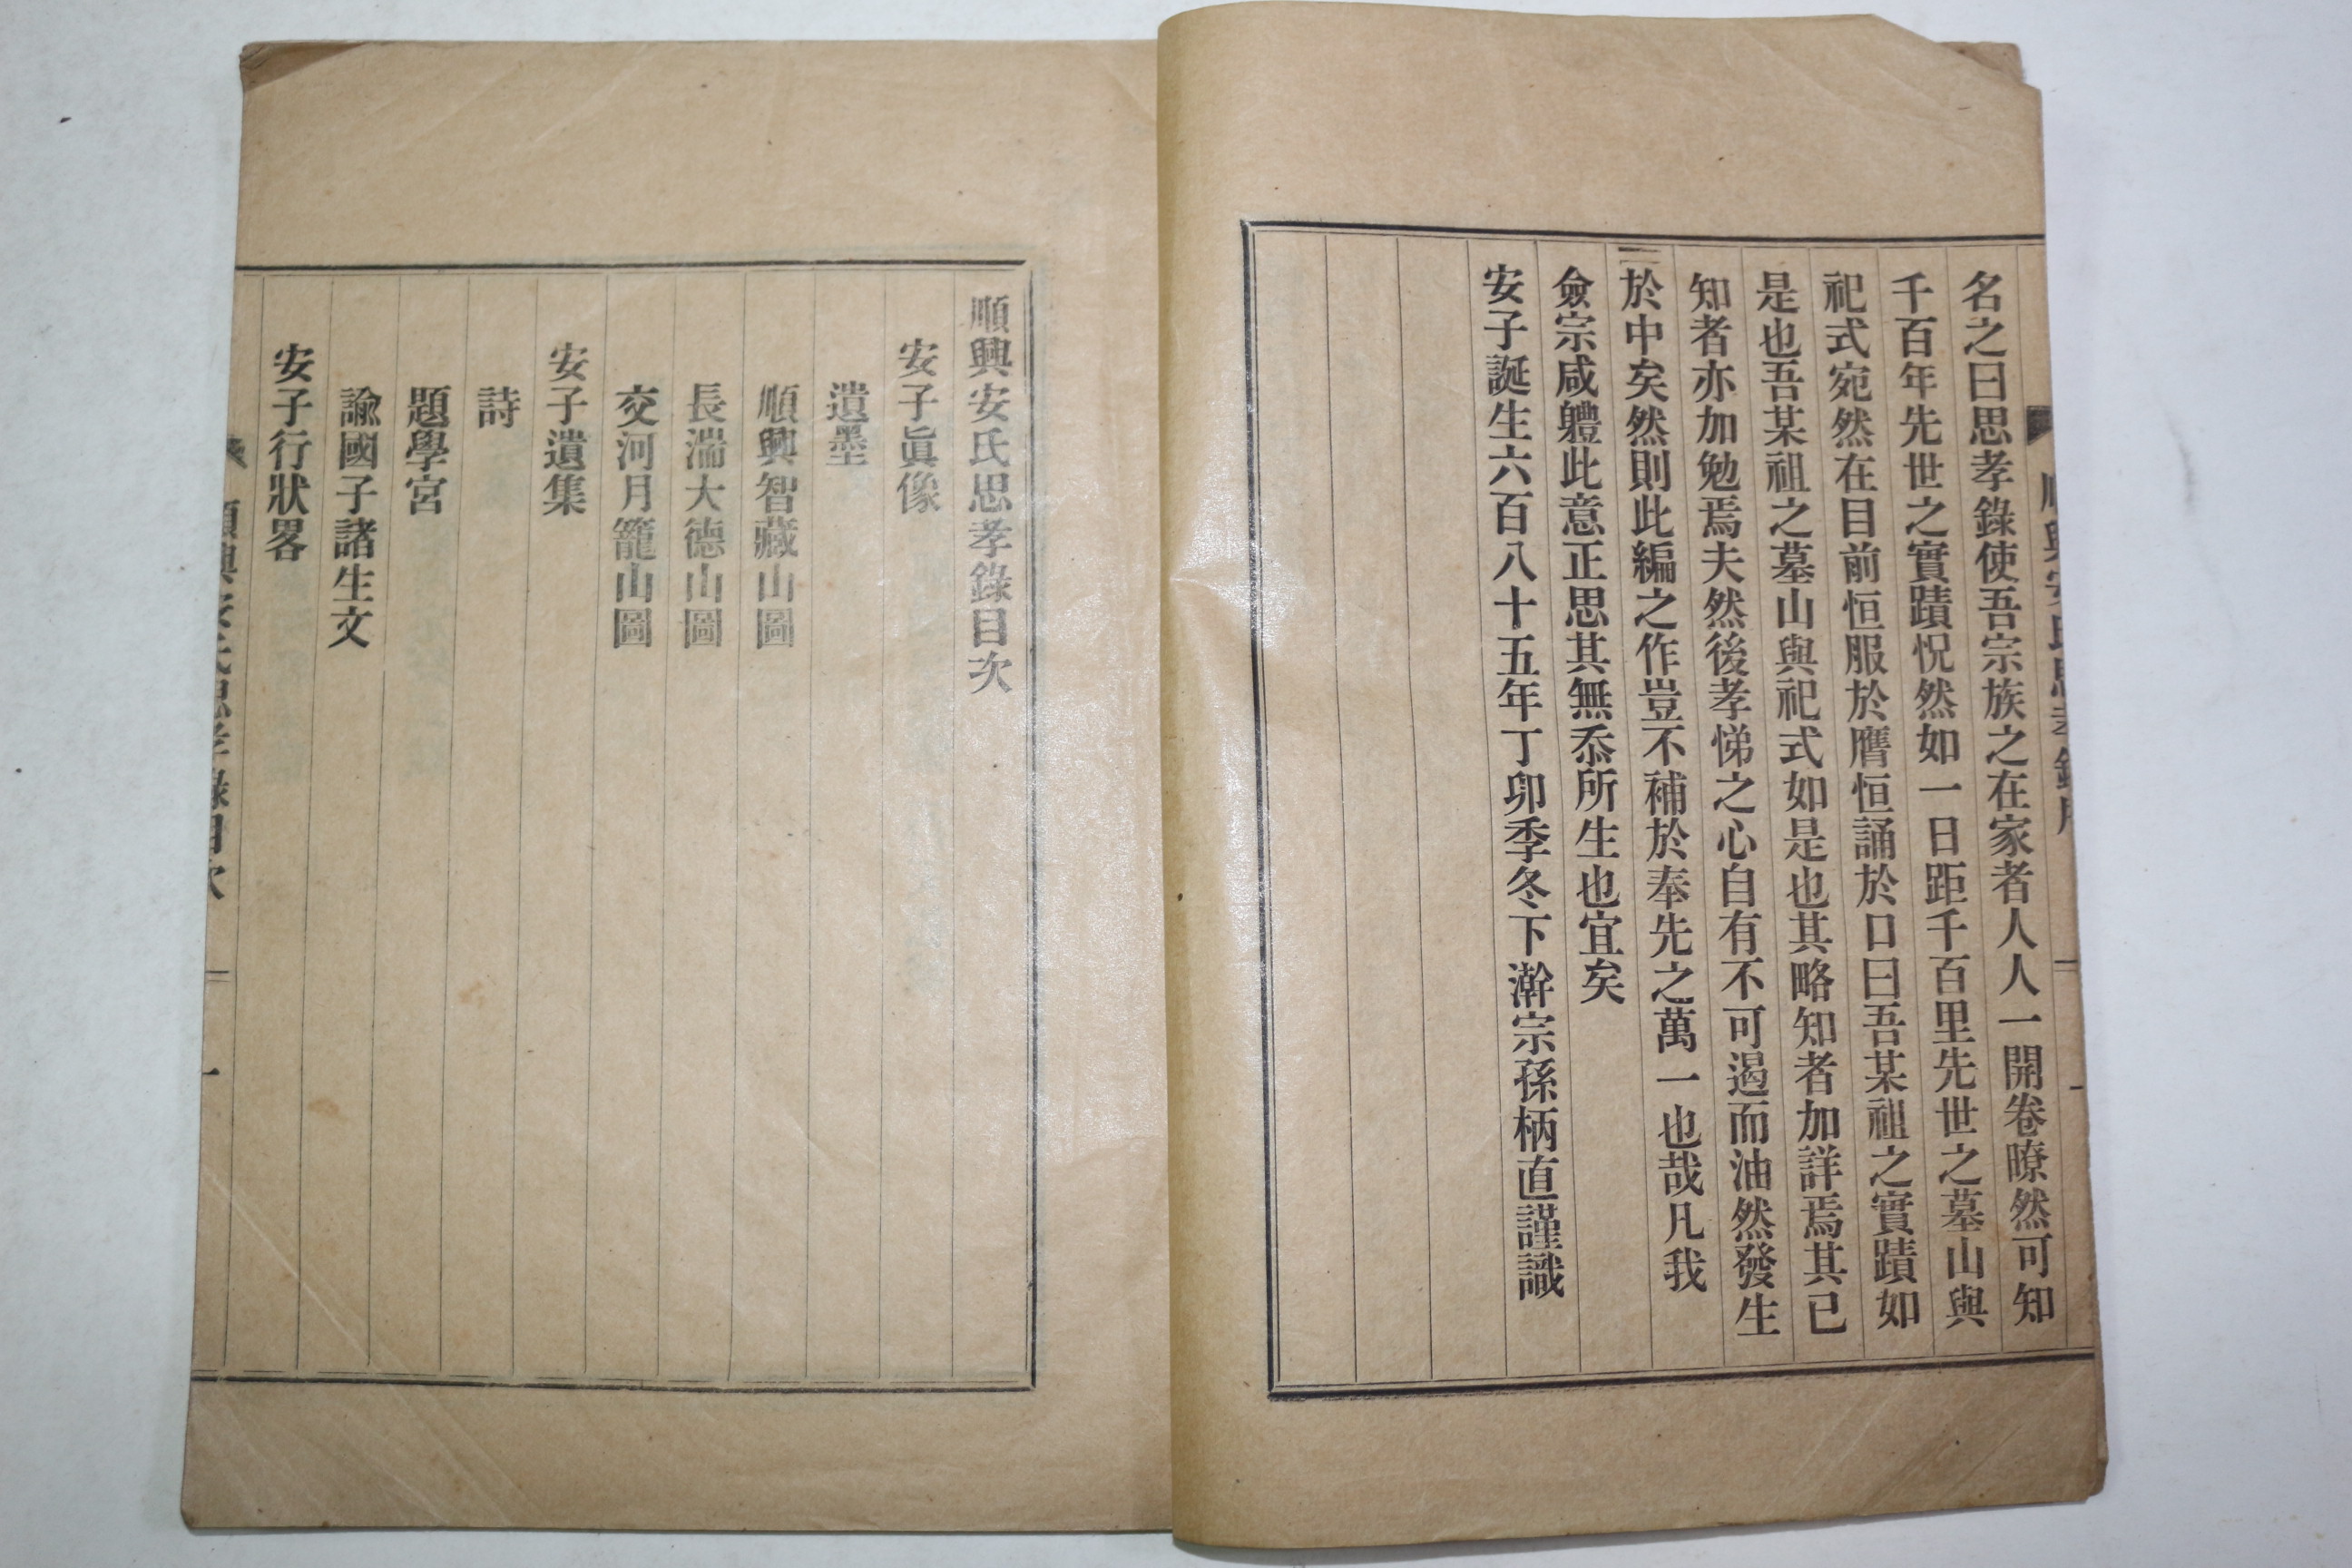 名之曰思孝錄使吾宗族之在家者人人一開卷瞭然可知
千百年先世之實蹟怳然如一日距千百里先世之墓山與
祀式宛然在目前恒服於膺恒誦於口曰吾某祖之實蹟如
是也吾某祖之墓山與祀式如是也其略知者加詳焉其已
知者亦加勉焉夫然後孝悌之心自有不可遏而油然發生
於中矣然則此編之作豈不補於奉先之萬一也哉凡我
僉宗咸軆此意正思其無忝所生也宜矣
安子誕生六百八十五年丁卯季冬下澣宗孫柄直謹識
順興安氏思孝錄目次
安子眞像
遺墨
順興智藏山圖
長湍大德山圖
交河月籠山圖
安子遺集
詩
題學宮
諭國子諸生文
安子行狀畧
順興安氏思孝錄目次 一